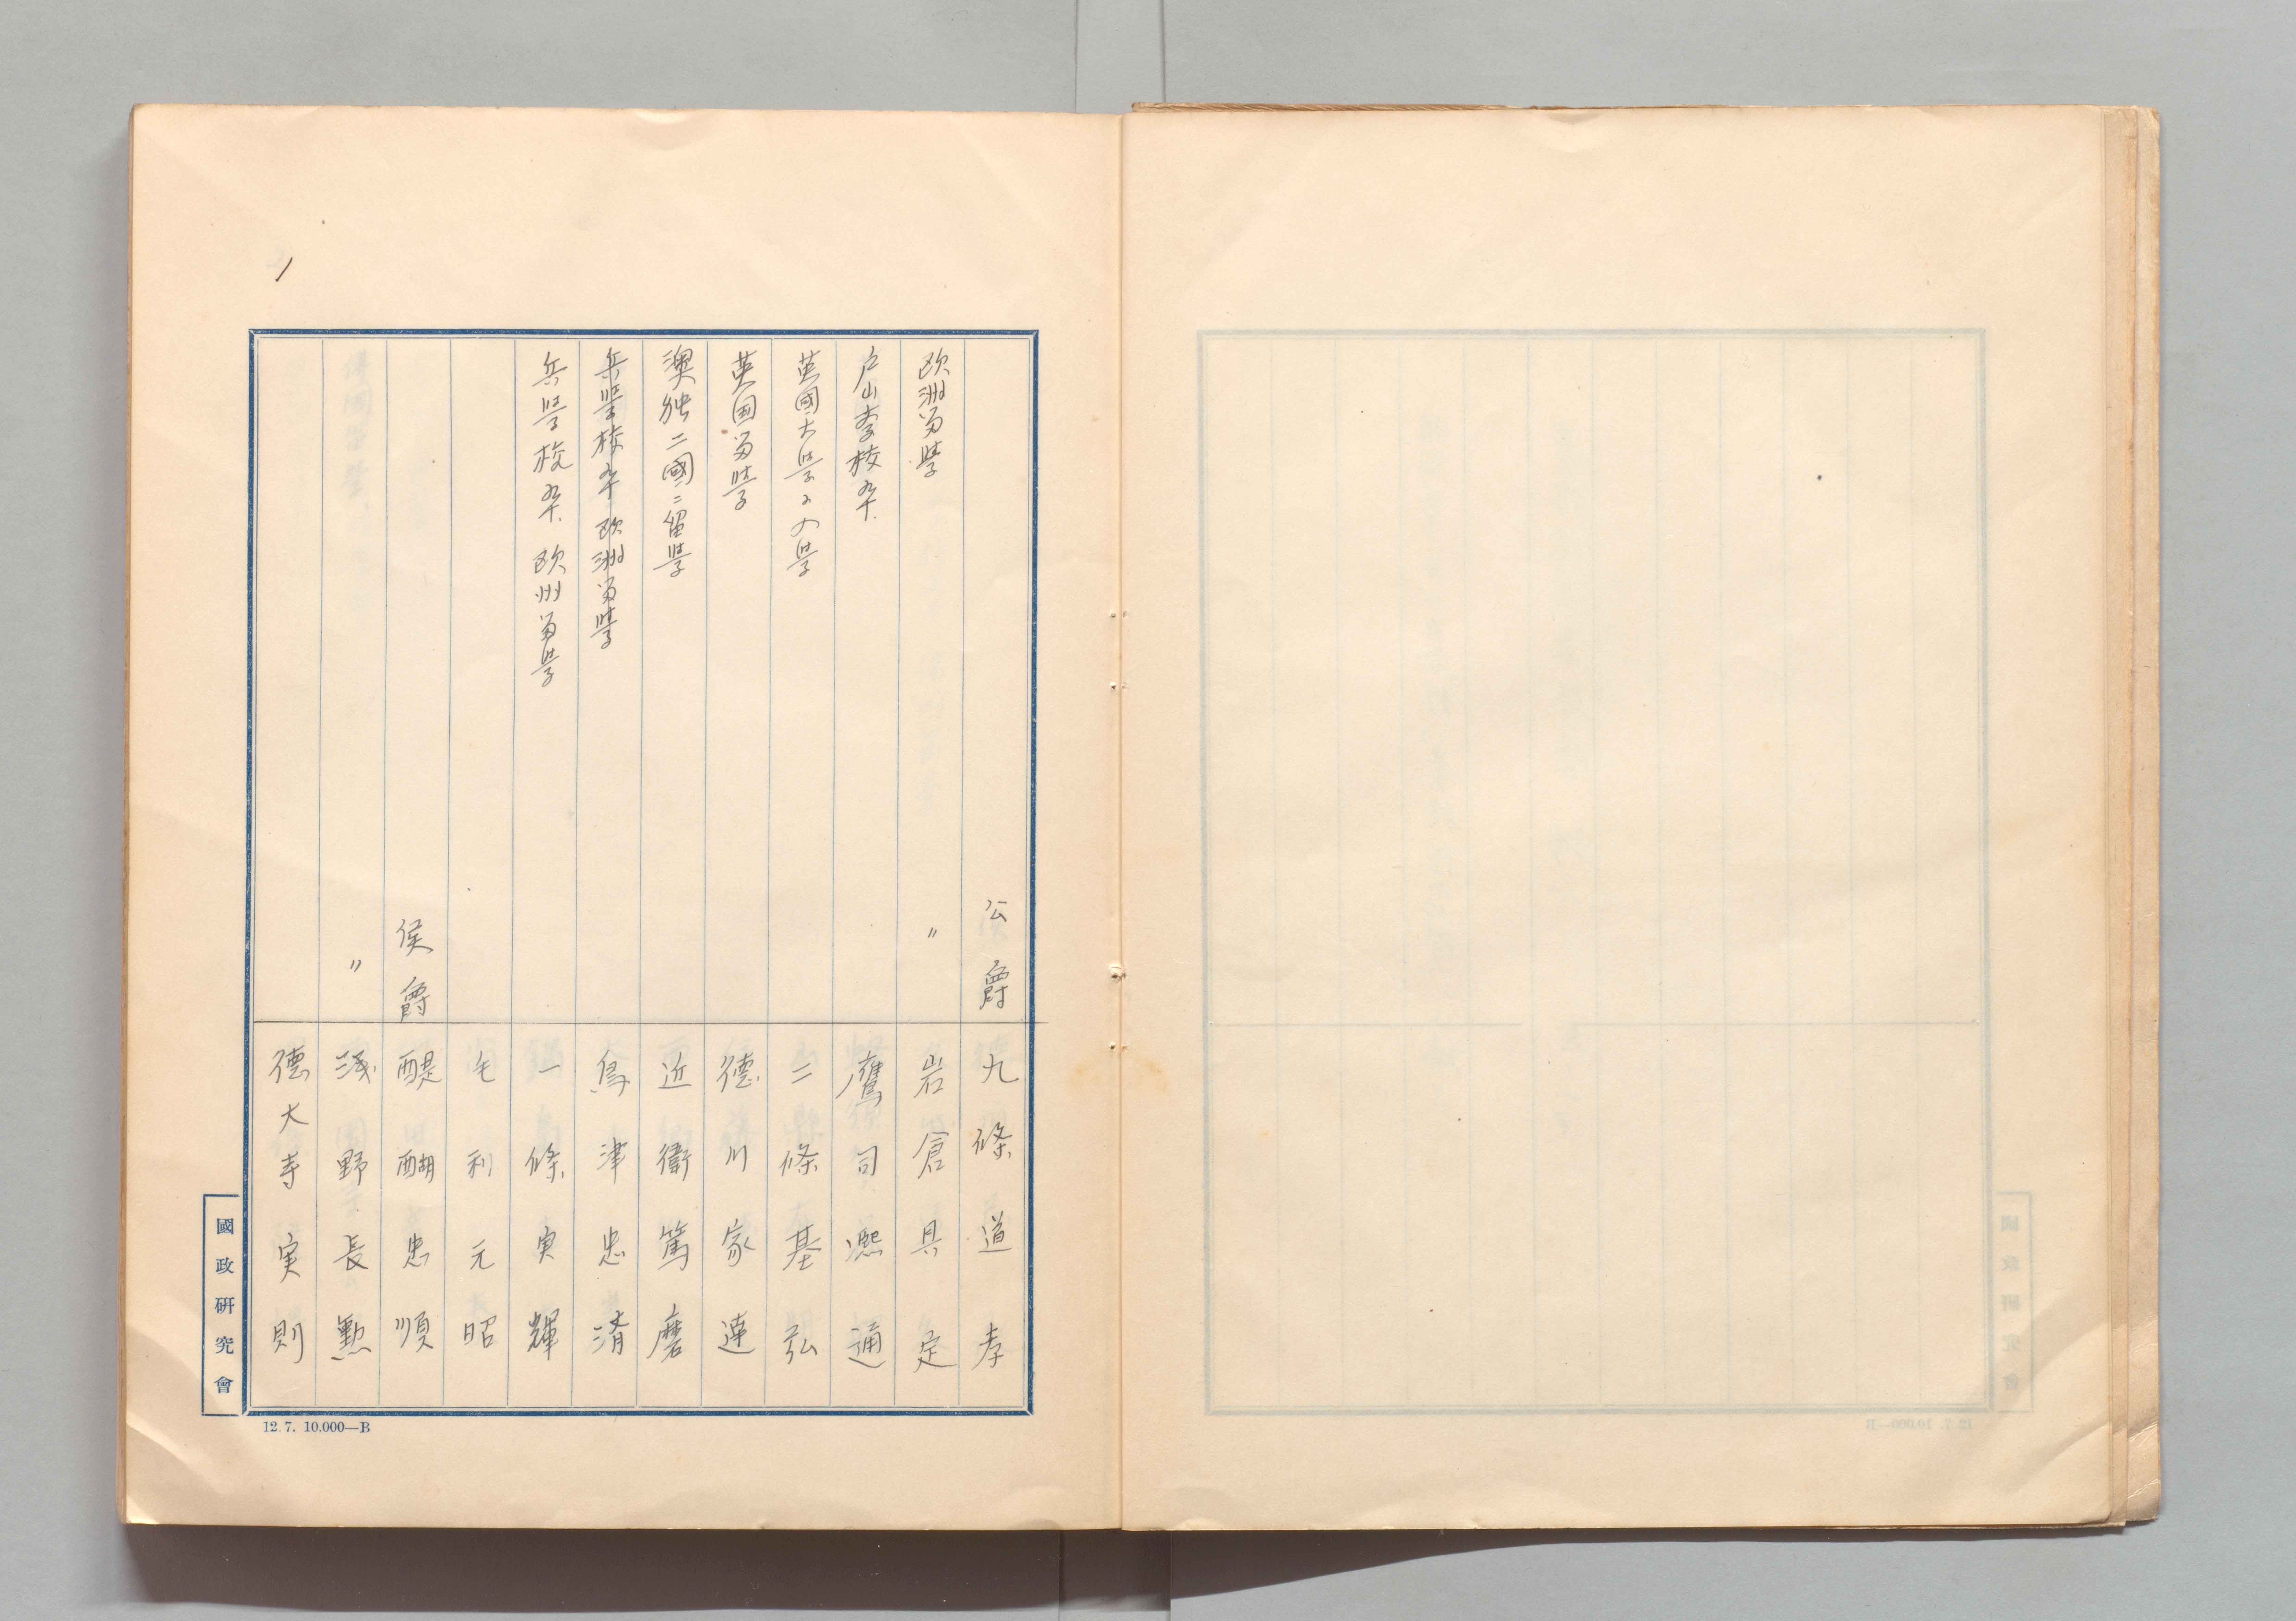 1
公爵 九條道孝
欧洲留学 〃 岩倉具定
戸山学校卒 鷹司凞通
英國大学ニ入学 二條基弘
英国留学 徳川家達
澳独二國ニ留学 近衛篤麿
兵学校卒 欧洲留学 島津忠済
兵学校卒 欧州留学 一條実輝
毛利元昭
侯爵 醍醐忠順
〃 浅野長勲
徳大寺実則
國政研究會
12.7. 10.000—B